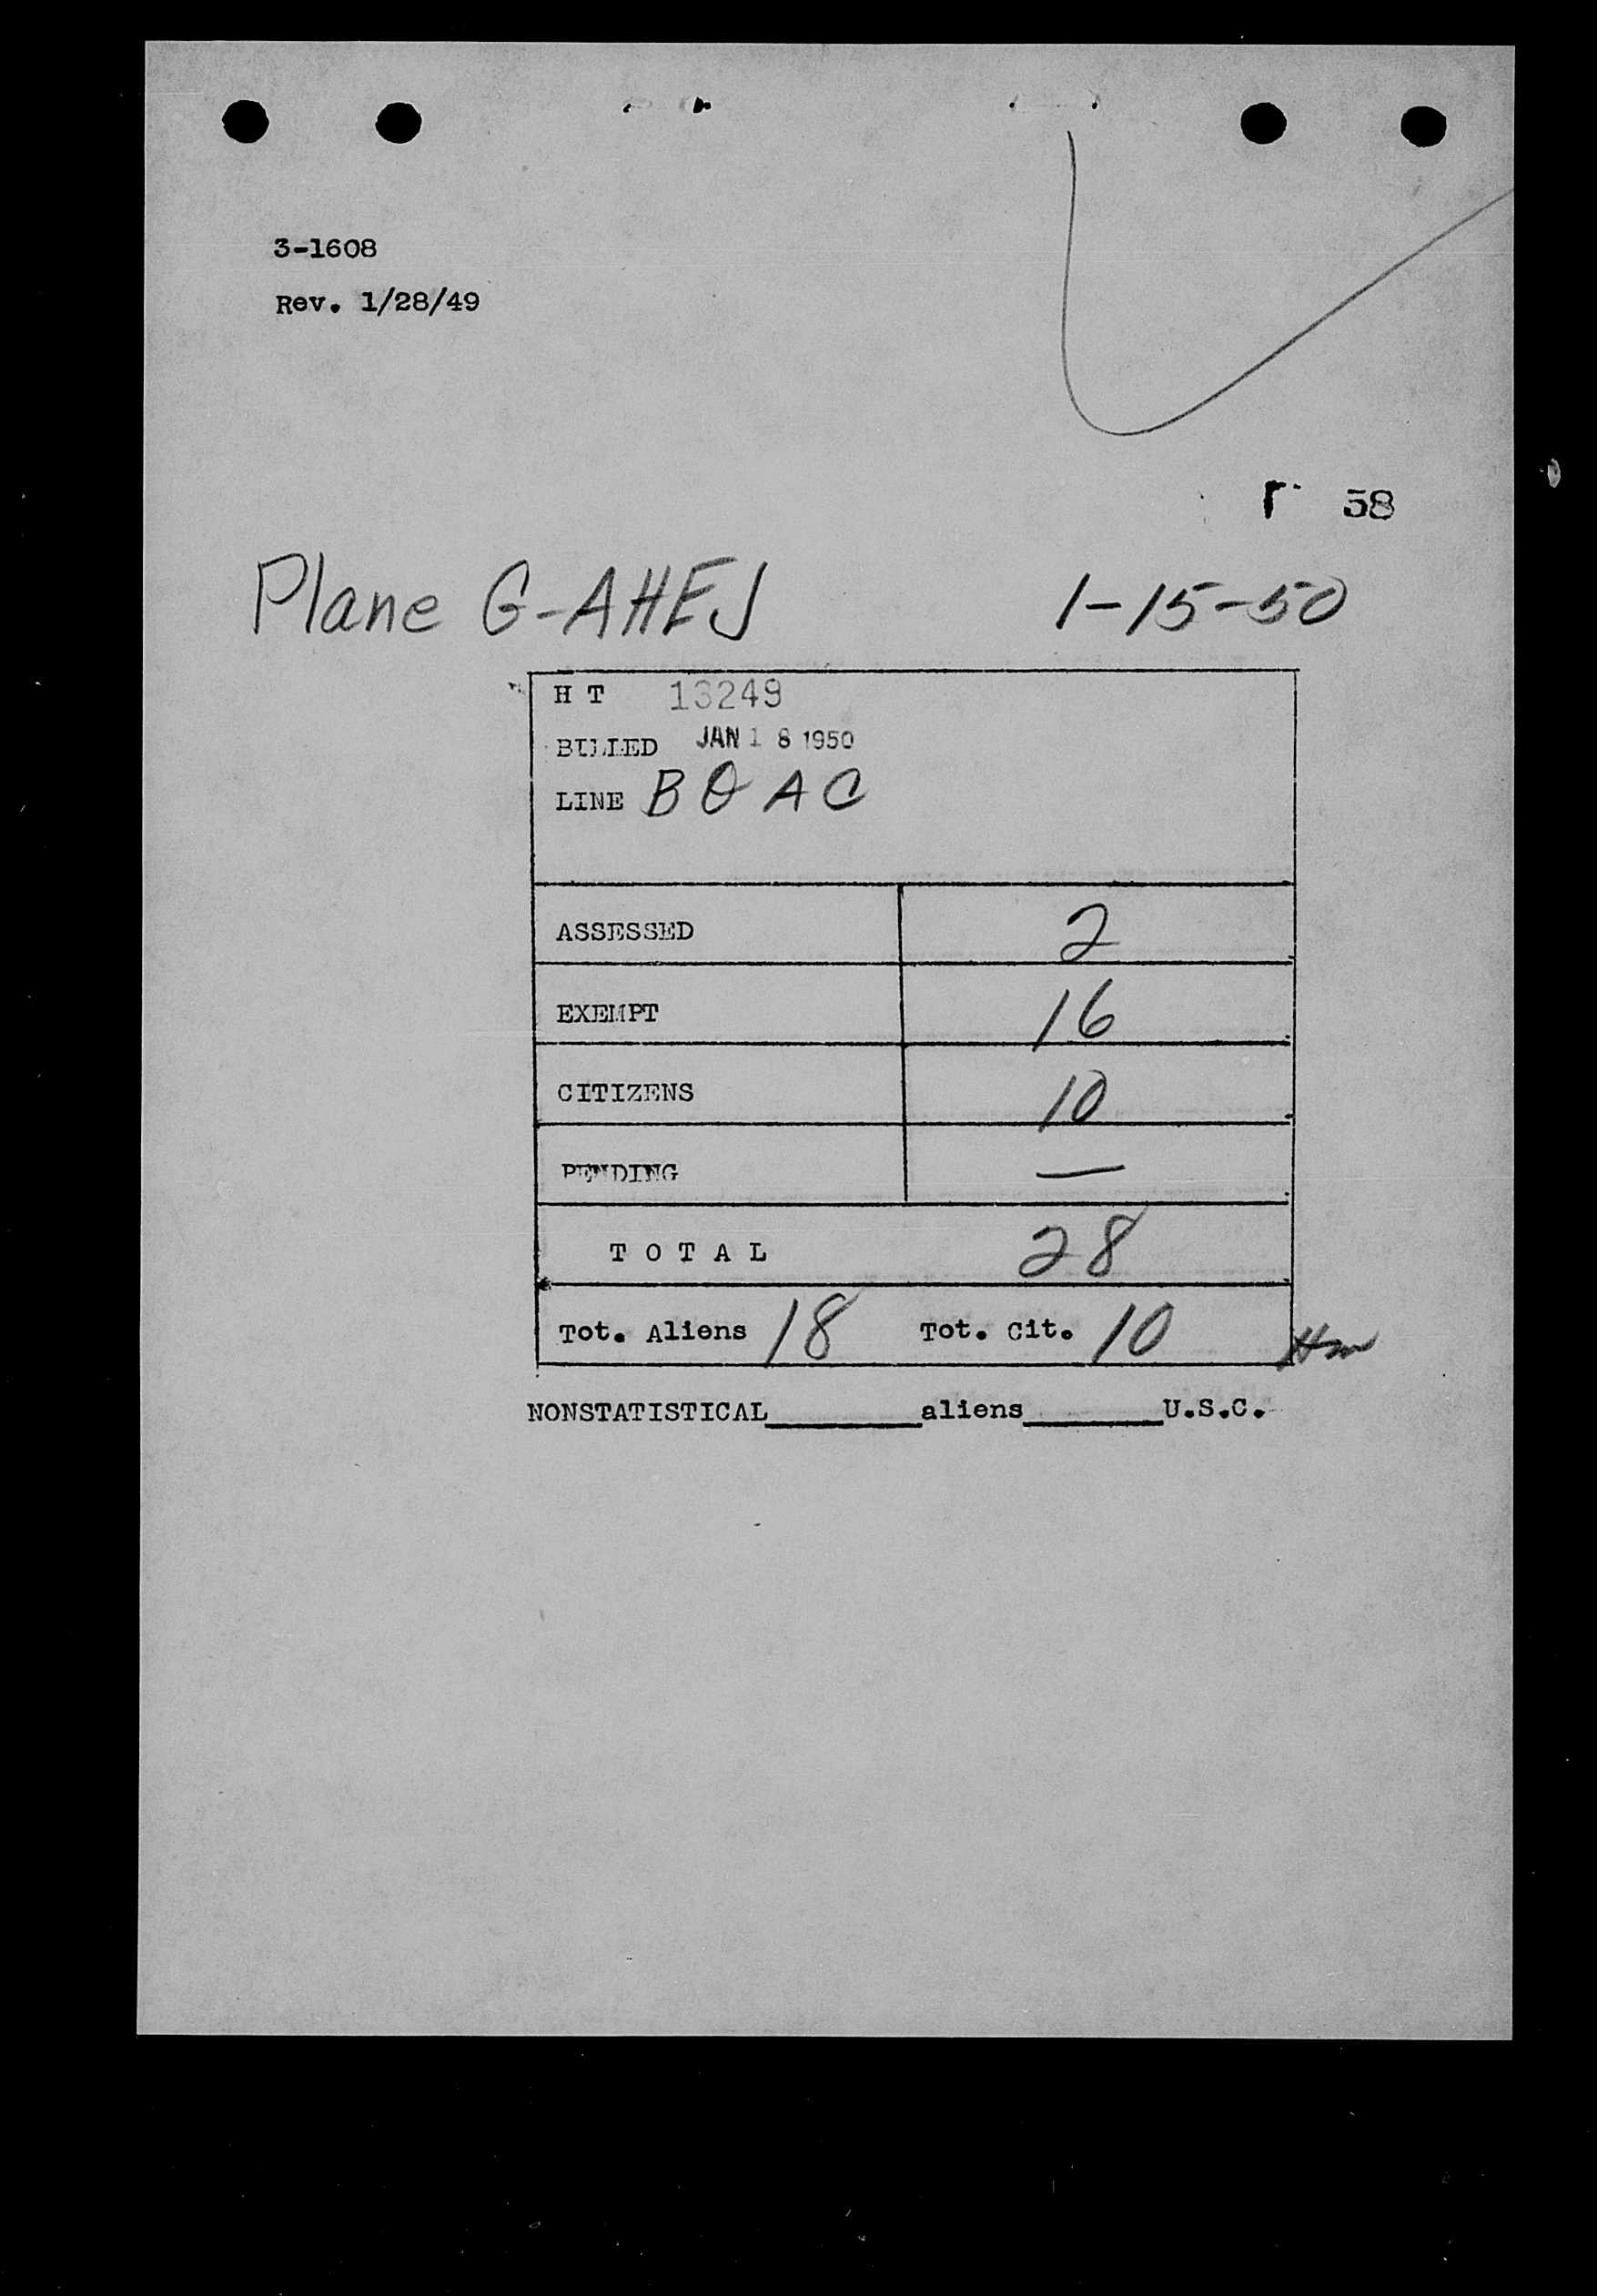 3-1608
Rev. 1/28/49
58
Plane G-AHEJ 1-15-50
H T 13249
BILLED JAN 18 1950
LINE BOAC
ASSESSED 2
EXEMPT 16
CITIZENS 10
PENDING —
T O T A L 28
Tot. Aliens 18 Tot. Cit. 10
NONSTATISTICAL________aliens_______U.S.C.